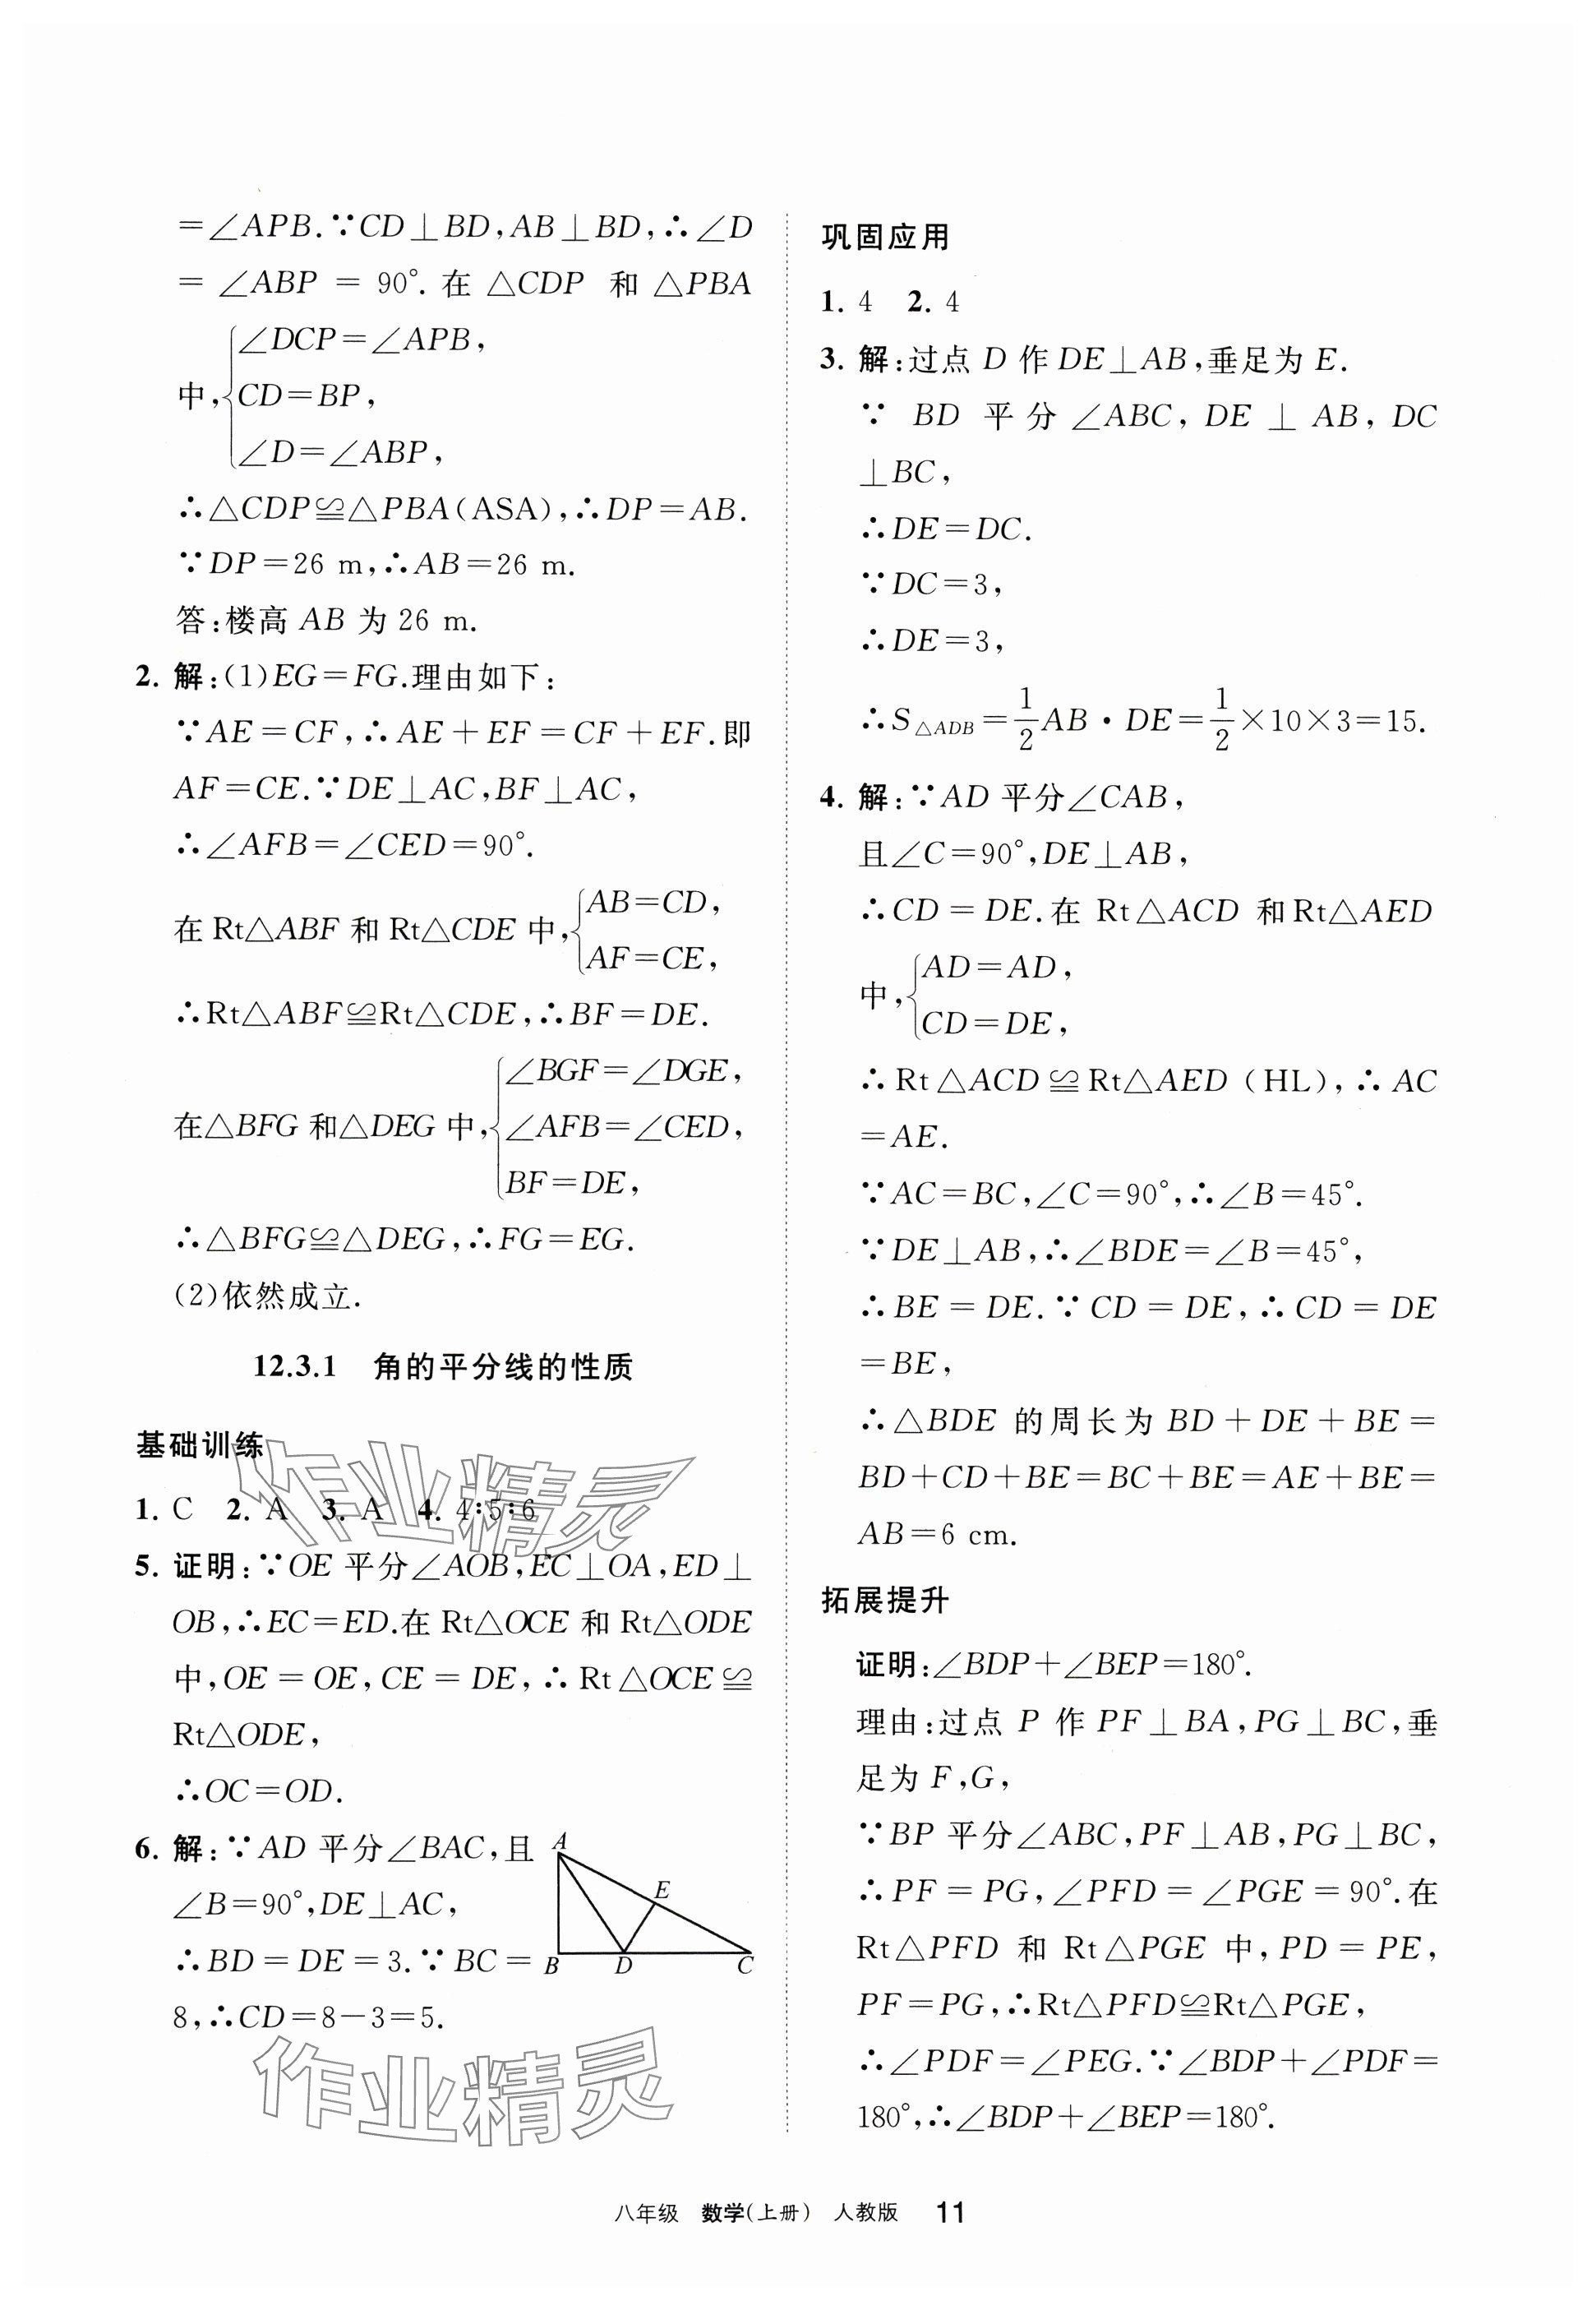 =∠APB.∵CD⊥BD,AB⊥BD,∴∠D
=∠ABP=90°.在△CDP 和△PBA
中,{∠DCP=∠APB,
CD=BP,
∠D=∠ABP,
∴△CDP≌△PBA(ASA),∴DP=AB.
∵DP=26 m,∴AB=26 m.
答:楼高 AB 为 26 m.
2. 解:(1)EG=FG.理由如下:
∵AE=CF,∴AE+EF=CF+EF.即
AF=CE.∵DE⊥AC,BF⊥AC,
∴∠AFB=∠CED=90°.
在 Rt△ABF 和 Rt△CDE 中,{AB=CD,
AF=CE,
∴Rt△ABF≌Rt△CDE,∴BF=DE.
在△BFG 和△DEG 中,{∠BGF=∠DGE,
∠AFB=∠CED,
BF=DE,
∴△BFG≌△DEG,∴FG=EG.
(2)依然成立.
12.3.1 角的平分线的性质
基础训练
1. C 2. A 3. A 4. 4∶5∶6
5. 证明:∵OE 平分∠AOB,EC⊥OA,ED⊥
OB,∴EC=ED.在 Rt△OCE 和 Rt△ODE
中,OE=OE,CE=DE,∴Rt△OCE≌
Rt△ODE,
∴OC=OD.
6. 解:∵AD 平分∠BAC,且
∠B=90°,DE⊥AC,
∴BD=DE=3.∵BC=
8,∴CD=8-3=5.
A
E
B
D
C
作业精灵
作业精灵
巩固应用
1. 4 2. 4
3. 解:过点 D 作 DE⊥AB,垂足为 E.
∵ BD 平分∠ABC,DE⊥AB,DC
⊥BC,
∴DE=DC.
∵DC=3,
∴DE=3,
∴S△ADB=1/2AB·DE=1/2×10×3=15.
4. 解:∵AD 平分∠CAB,
且∠C=90°,DE⊥AB,
∴CD=DE.在 Rt△ACD 和Rt△AED
中,{AD=AD,
CD=DE,
∴Rt△ACD≌Rt△AED(HL),∴AC
=AE.
∵AC=BC,∠C=90°,∴∠B=45°.
∵DE⊥AB,∴∠BDE=∠B=45°,
∴BE=DE.∵CD=DE,∴CD=DE
=BE,
∴△BDE 的周长为 BD+DE+BE=
BD+CD+BE=BC+BE=AE+BE=
AB=6 cm.
拓展提升
证明:∠BDP+∠BEP=180°.
理由:过点 P 作 PF⊥BA,PG⊥BC,垂
足为 F,G,
∵BP 平分∠ABC,PF⊥AB,PG⊥BC,
∴PF=PG,∠PFD=∠PGE=90°.在
Rt△PFD 和 Rt△PGE 中,PD=PE,
PF=PG,∴Rt△PFD≌Rt△PGE,
∴∠PDF=∠PEG.∵∠BDP+∠PDF=
180°,∴∠BDP+∠BEP=180°.
八年级 数学(上册) 人教版 11